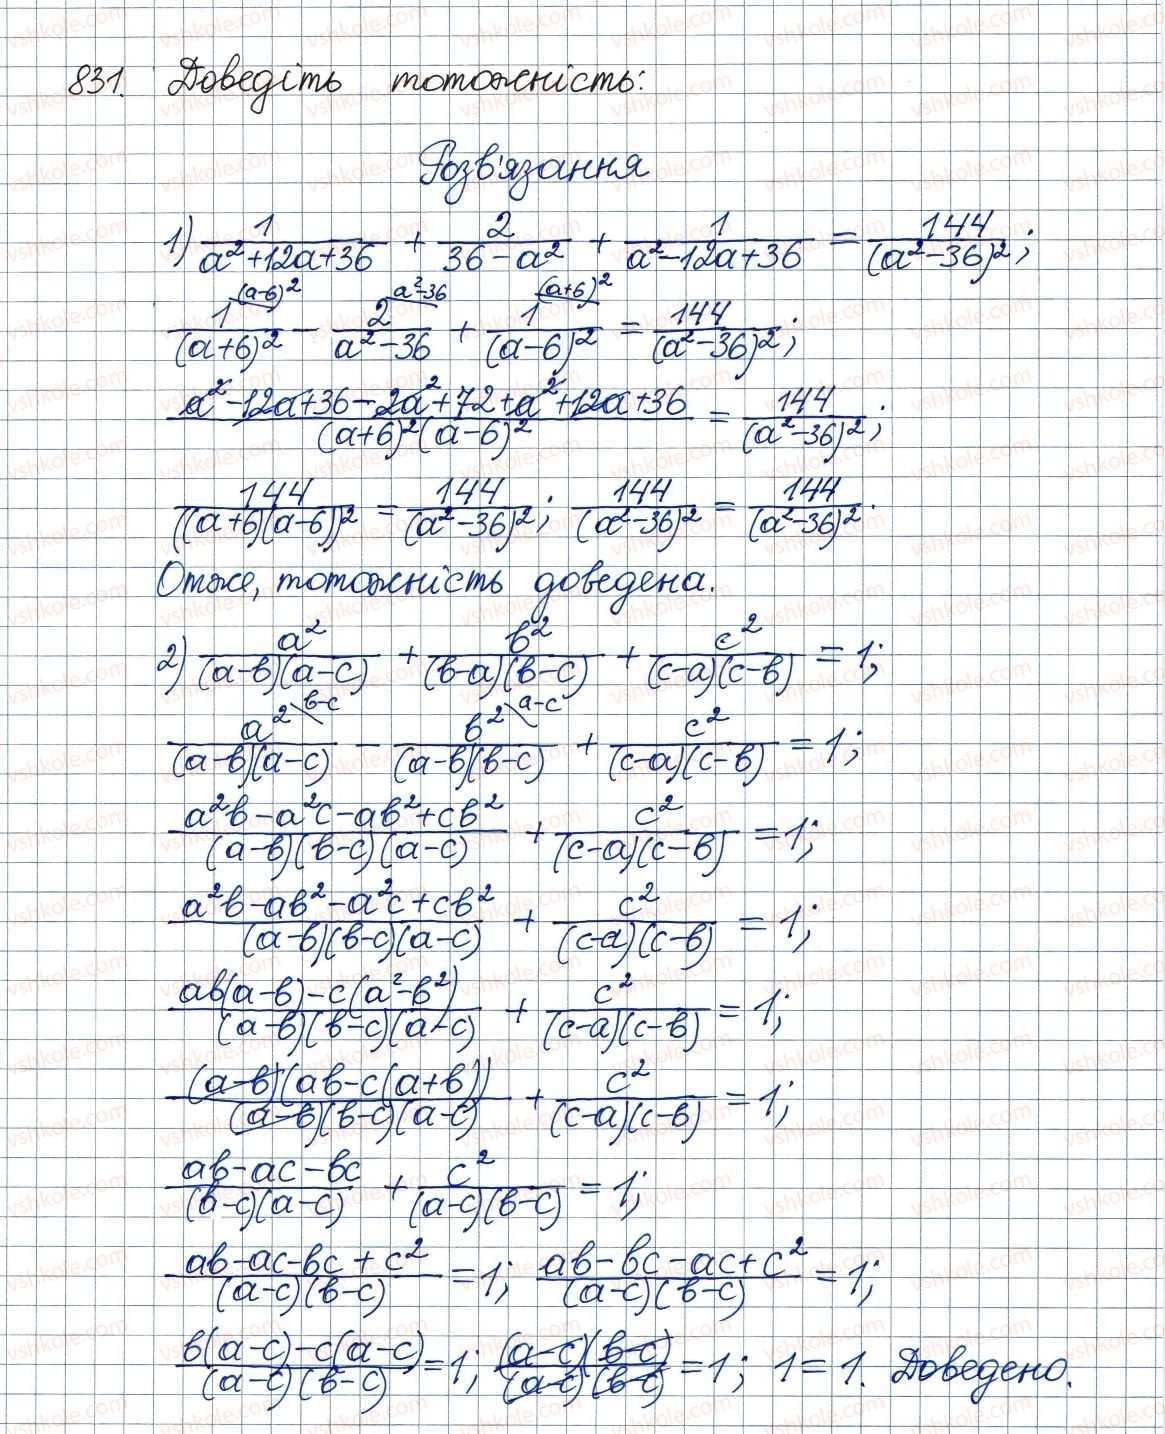 831. Доведіть тотожність:
Розв'язання
1) 1/(a²+12a+36) + 2/(36-a²) + 1/(a²-12a+36) = 144/(a²-36)²;
1^((a-6)²/(a+6)² - 2^(a²-36/(a²-36) + 1^((a+6)²/(a-6)² = 144/(a²-36)²;
(a²-12a+36-2a²+72+a²+12a+36)/((a+6)²(a-6)²) = 144/(a²-36)²;
144/((a+6)(a-6))² = 144/(a²-36)²; 144/(a²-36)² = 144/(a²-36)².
Отже, тотожність доведена.
2) a²/((a-в)(a-c)) + в²/((в-a)(в-c)) + c²/((c-a)(c-в)) = 1;
a² \в-c/((a-в)(a-c)) - в² \a-c/((a-в)(в-c)) + c²/((c-a)(c-в)) = 1;
(a²в-a²c-aв²+cв²)/((a-в)(в-c)(a-c)) + c²/((c-a)(c-в)) = 1;
(a²в-aв²-a²c+cв²)/((a-в)(в-c)(a-c)) + c²/((c-a)(c-в)) = 1;
(aв(a-в)-c(a²-в²))/((a-в)(в-c)(a-c)) + c²/((c-a)(c-в)) = 1;
((a-в)(aв-c(a+в)))/((a-в)(в-c)(a-c)) + c²/((c-a)(c-в)) = 1;
(aв-ac-вc)/((в-c)(a-c)) + c²/((a-c)(в-c)) = 1;
(aв-ac-вc+c²)/((a-c)(в-c)) = 1; (aв-вc-ac+c²)/((a-c)(в-c)) = 1;
(в(a-c)-c(a-c))/((a-c)(в-c)) = 1; ((a-c)(в-c))/((a-c)(в-c)) = 1; 1 = 1. Доведено.
vshkole.com